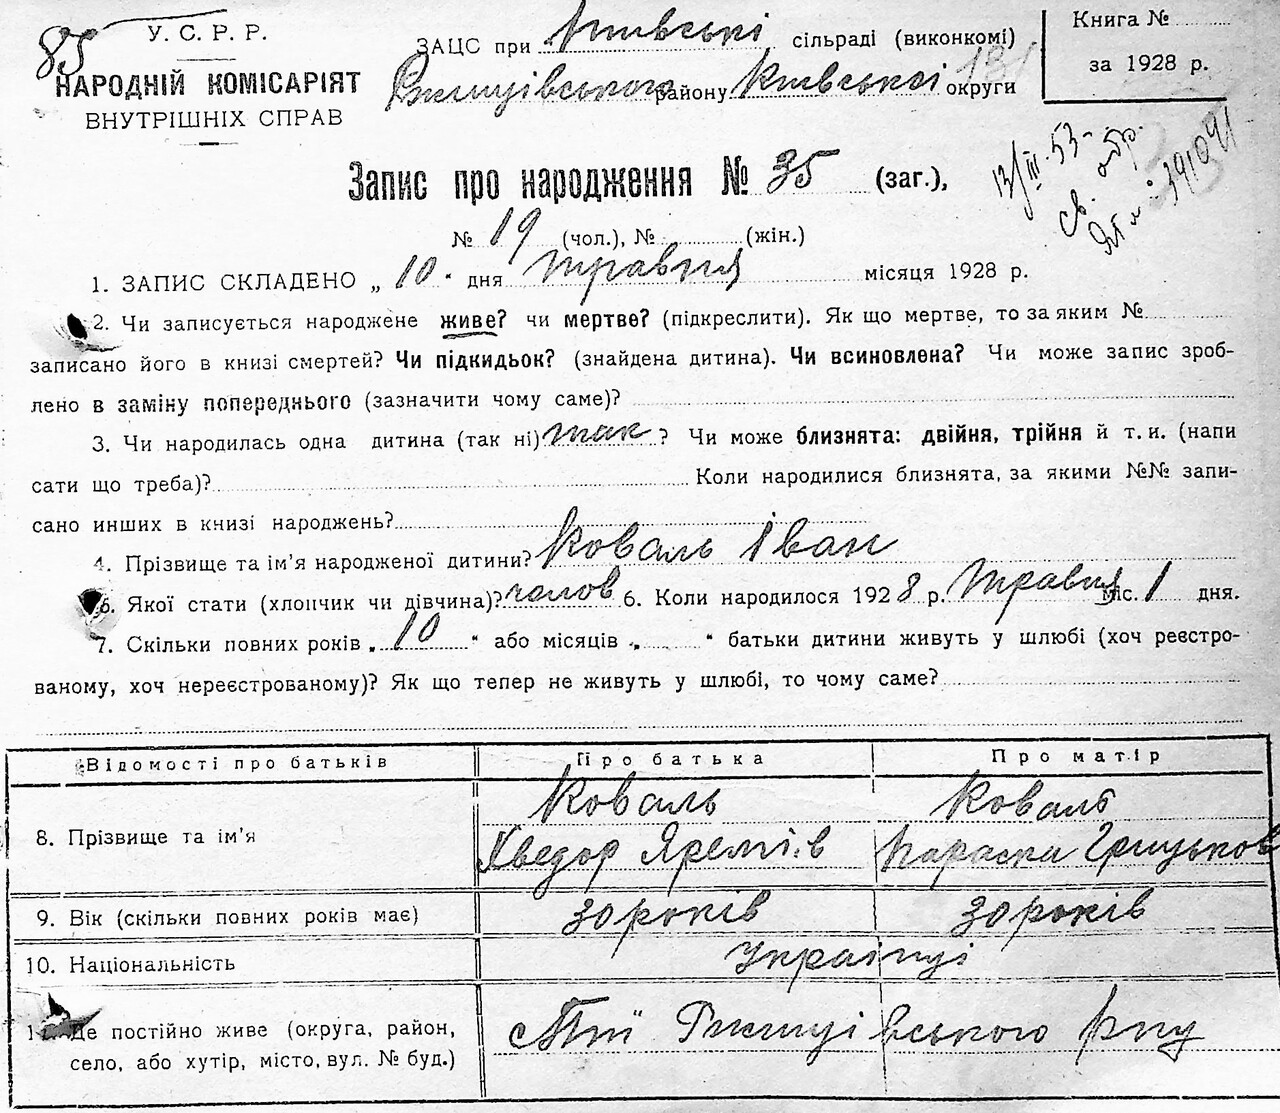 85
У. С. Р. Р.
НАРОДНІЙ КОМІСАРІЯТ
ВНУТРІШНІХ СПРАВ
ЗАЦС при сільраді (виконкомі)
Ржищівського району Київської округи
131
Книга №
за 1928 р.
13/III 53-
Св.
391091
Запис про народження № 35 (заг.),
№ 19 (чол.), № (жін.)
1. ЗАПИС СКЛАДЕНО „ 10 “ дня травня місяця 1928 р.
2. Чи записується народжене живе? чи мертве? (підкреслити). Як що мертве, то за яким №
записано його в книзі смертей? Чи підкидьок? (знайдена дитина). Чи всиновлена? Чи може запис зроб-
лено в заміну попереднього (зазначити чому саме)?
3. Чи народилась одна дитина (так ні) так ? Чи може близнята: двійня, трійня й т. и. (напи
сати що треба)? Коли народилися близнята, за якими №№ запи-
сано инших в книзі народжень?
4. Прізвище та ім’я народженої дитини? Коваль Іван
6. Якої стати (хлопчик чи дівчина)? чолов 6. Коли народилося 1928 р. Травня міс. 1 дня.
7. Скільки повних років „ 10 “ або місяців „ “ батьки дитини живуть у шлюбі (хоч реєстро-
ваному, хоч нереєстрованому)? Як що тепер не живуть у шлюбі, то чому саме?
Відомості про батьків Про батька Про матір
8. Прізвище та ім’я Коваль Хведор Яремів Коваль Параска Грицьков
9. Вік (скільки повних років має) 30 років 30 років
10. Національність Українці
1 Де постійно живе (округа, район, Ржищівського рну
село, або хутір, місто, вул. № буд.)